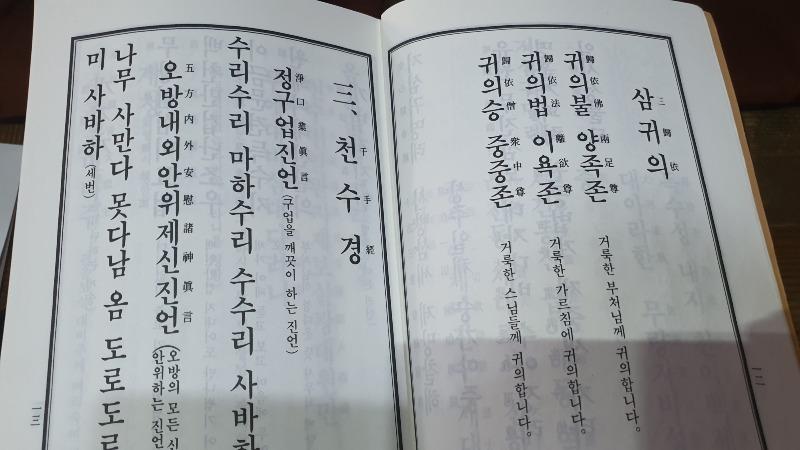 삼귀의
三歸依
귀의불 양족존 거룩한 부처님께 귀의합니다.
歸依佛 兩足尊
귀의법 이욕존 거룩한 가르침에 귀의합니다.
歸依法 離欲尊
귀의승 중중존 거룩한 스님들께 귀의합니다.
歸依僧 衆中尊
一二
三、천수경
千手經
정구업진언 (구업을 깨끗이 하는 진언)
淨口業眞言
수리수리 마하수리 수수리 사바하
오방내외안위제신진언 (오방의 모든 신
五方內外安慰諸神眞言
안위하는 진언
나무 사만다 못다남 옴 도로도로
미 사바하 (세번)
一三